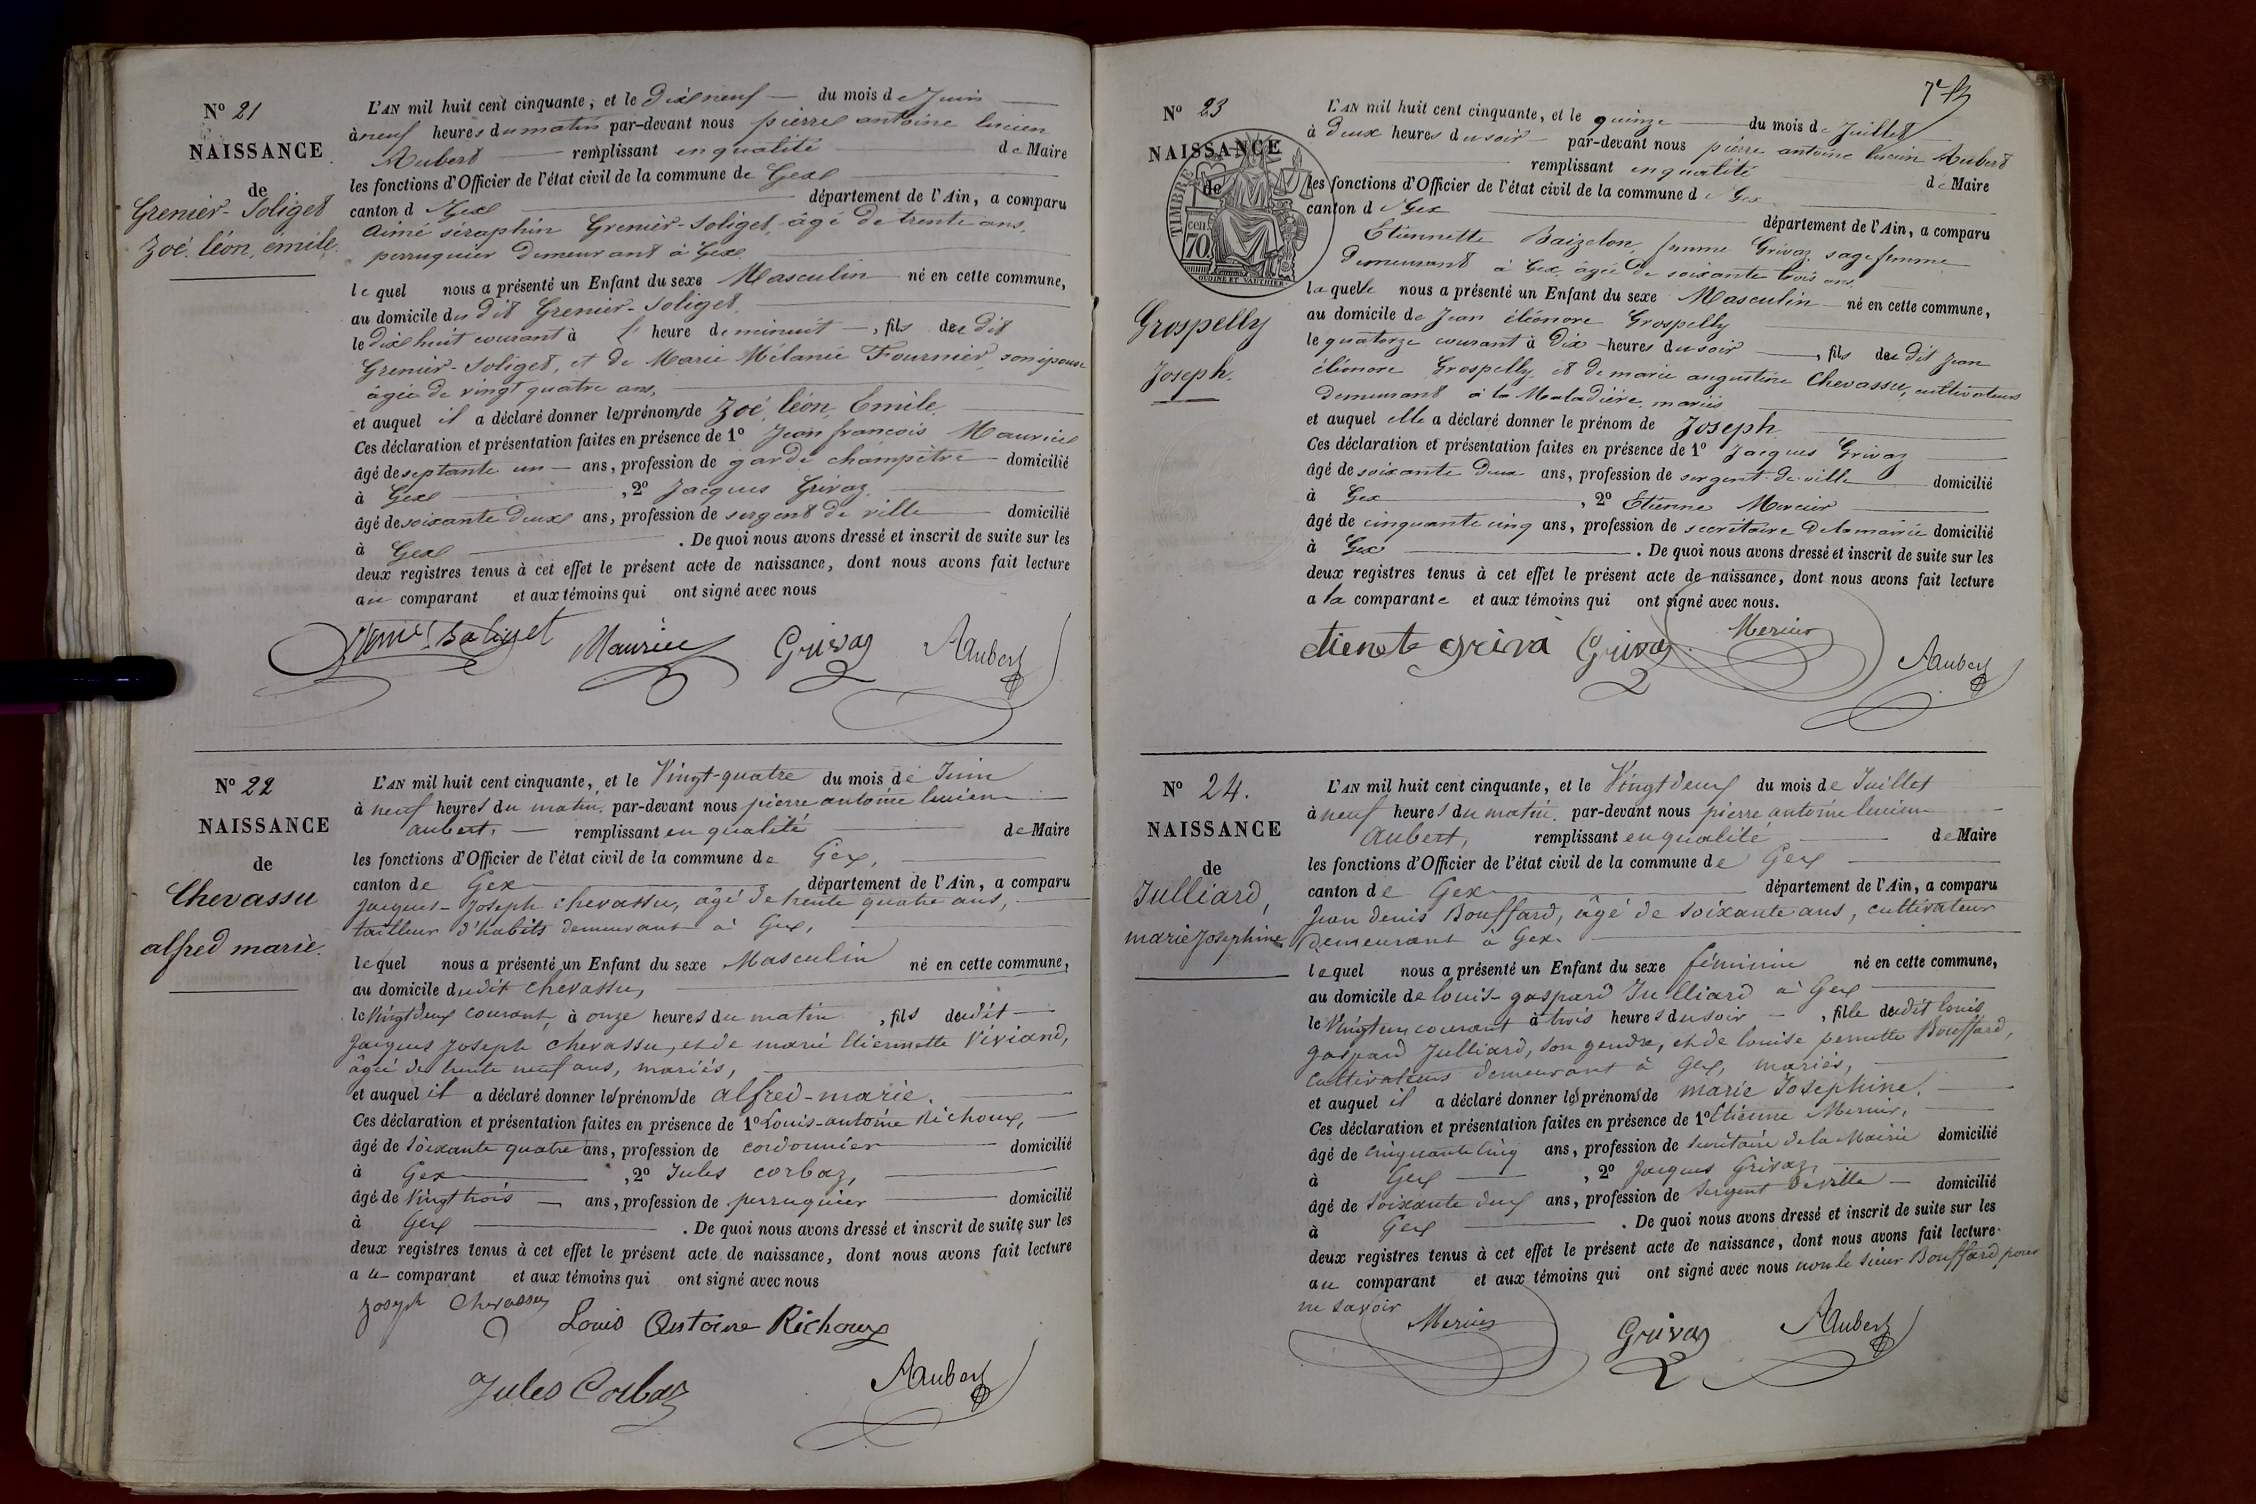 N° 21
NAISSANCE
de
Grenier-Soliget
Zoé, léon, emile.
L'AN mil huit cent cinquante, et le Dixneuf du mois de Juin
à neuf heures du matin par-devant nous pierre antoine lucien
Aubert remplissant en qualité de Maire
les fonctions d'Officier de l'état civil de la commune de Gex
canton de Gex département de l'Ain, a comparu
Aimé séraphin Grenier-Soliget, âgé de trente ans,
perruquier demeurant à Gex
lequel nous a présenté un Enfant du sexe Masculin né en cette commune,
au domicile du dit Grenier-Soliget,
le dix huit courant à heure de minuit, fils du dit
Grenier-Soliget, et de Marie Mélanie Fournier, son épouse
âgée de vingt quatre ans,
et auquel il a déclaré donner les prénoms de Zoé, léon, Emile.
Ces déclaration et présentation faites en présence de 1° Jean françois Maurice
âgé de septante un ans, profession de garde champêtre domicilié
à Gex, 2° Jacques Grivaz
âgé de soixante deux ans, profession de sergent de ville domicilié
à Gex. De quoi nous avons dressé et inscrit de suite sur les
deux registres tenus à cet effet le présent acte de naissance, dont nous avons fait lecture
au comparant et aux témoins qui ont signé avec nous
Soliget Maurice Grivaz AAubert
N° 22
NAISSANCE
de
Chevassu
alfred marie.
L'AN mil huit cent cinquante, et le Vingt-quatre du mois de Juin
à neuf heures du matin par-devant nous pierre antoine lucien
aubert, remplissant en qualité de Maire
les fonctions d'Officier de l'état civil de la commune de Gex,
canton de Gex département de l'Ain, a comparu
Jacques-Joseph Chevassu, âgé de trente quatre ans,
tailleur d'habits demeurant à Gex,
lequel nous a présenté un Enfant du sexe Masculin né en cette commune,
au domicile dudit Chevassu,
le Vingt deux courant, à onze heures du matin, fils dudit
Jacques Joseph Chevassu, et de marie Etiennette Viviand,
âgée de trente neuf ans, mariés,
et auquel il a déclaré donner les prénoms de alfred-marie.
Ces déclaration et présentation faites en présence de 1° Louis-antoine Richoux,
âgé de Soixante quatre ans, profession de cordonnier domicilié
à Gex, 2° Jules corbaz,
âgé de Vingt trois ans, profession de perruquier domicilié
à Gex. De quoi nous avons dressé et inscrit de suite sur les
deux registres tenus à cet effet le présent acte de naissance, dont nous avons fait lecture
a le comparant et aux témoins qui ont signé avec nous
Joseph Chevassu Louis Antoine Richoux
Jules Corbaz AAubert
N° 23
NAISSANCE
de
TIMBRE
70 cen
OUDINÉ ET VAUTHIER
Grospelly
Joseph.
L'AN mil huit cent cinquante, et le quinze du mois de Juillet
à deux heures du soir par-devant nous pierre antoine lucien Aubert
remplissant en qualité de Maire
les fonctions d'Officier de l'état civil de la commune de Gex
canton de Gex département de l'Ain, a comparu
Etiennette Baizelon femme Grivaz, sage femme
demeurant à Gex, âgée de soixante trois ans,
laquelle nous a présenté un Enfant du sexe Masculin né en cette commune,
au domicile de Jean éléonore Grospelly
le quatorze courant à Dix heures du soir, fils du dit Jean
éléonore Grospelly, et de marie augustine Chevassu, cultivateurs
demeurant à la Maladière, mariés
et auquel elle a déclaré donner le prénom de Joseph
Ces déclaration et présentation faites en présence de 1° Jacques Grivaz
âgé de soixante deux ans, profession de sergent de ville domicilié
à Gex, 2° Etienne Mercier
âgé de cinquante cinq ans, profession de secrétaire de la mairie domicilié
à Gex. De quoi nous avons dressé et inscrit de suite sur les
deux registres tenus à cet effet le présent acte de naissance, dont nous avons fait lecture
a la comparante et aux témoins qui ont signé avec nous.
etienete griva Grivaz Mercier AAubert
N° 24.
NAISSANCE
de
Julliard,
marie Josephine
L'AN mil huit cent cinquante, et le Vingt deux du mois de Juillet
à neuf heures du matin par-devant nous pierre antoine lucien
Aubert, remplissant en qualité de Maire
les fonctions d'Officier de l'état civil de la commune de Gex
canton de Gex département de l'Ain, a comparu
Jean denis Bouffard, âgé de soixante ans, cultivateur
demeurant à Gex
lequel nous a présenté un Enfant du sexe féminin né en cette commune,
au domicile de louis-gaspard Julliard à Gex
le Vingt un courant à trois heures du soir, fille dudit louis
gaspard Julliard, son gendre, et de louise pernette Bouffard,
cultivateurs demeurant à Gex, mariés,
et auquel il a déclaré donner les prénoms de marie Josephine.
Ces déclaration et présentation faites en présence de 1° Etienne Mercier,
âgé de Cinquante cinq ans, profession de Secrétaire de la Mairie domicilié
à Gex, 2° Jacques Grivaz,
âgé de Soixante deux ans, profession de Sergent de ville domicilié
à Gex. De quoi nous avons dressé et inscrit de suite sur les
deux registres tenus à cet effet le présent acte de naissance, dont nous avons fait lecture
au comparant et aux témoins qui ont signé avec nous non le sieur Bouffard pour
ne savoir
Mercier Grivaz AAubert